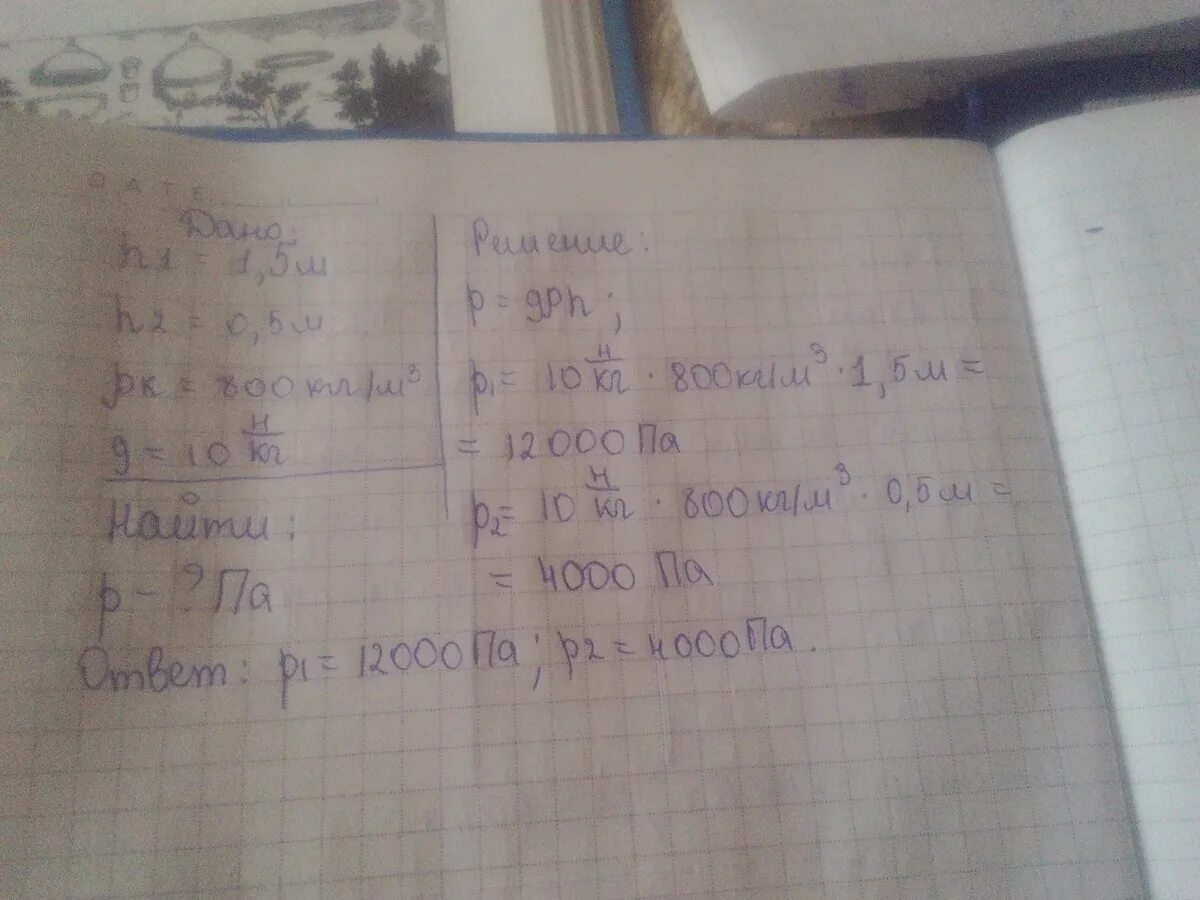 DATE
Дано:
h1 = 1,5м
h2 = 0,5м
рк = 800 кг/м³
g = 10 Н/кг
Найти:
р - ? Па
Решение:
р = gρh;
р₁ = 10 Н/кг · 800кг/м³ · 1,5м =
= 12000 Па
р₂ = 10 Н/кг · 800кг/м³ · 0,5м =
= 4000 Па
Ответ: р₁ = 12000Па; р2 = 4000Па.